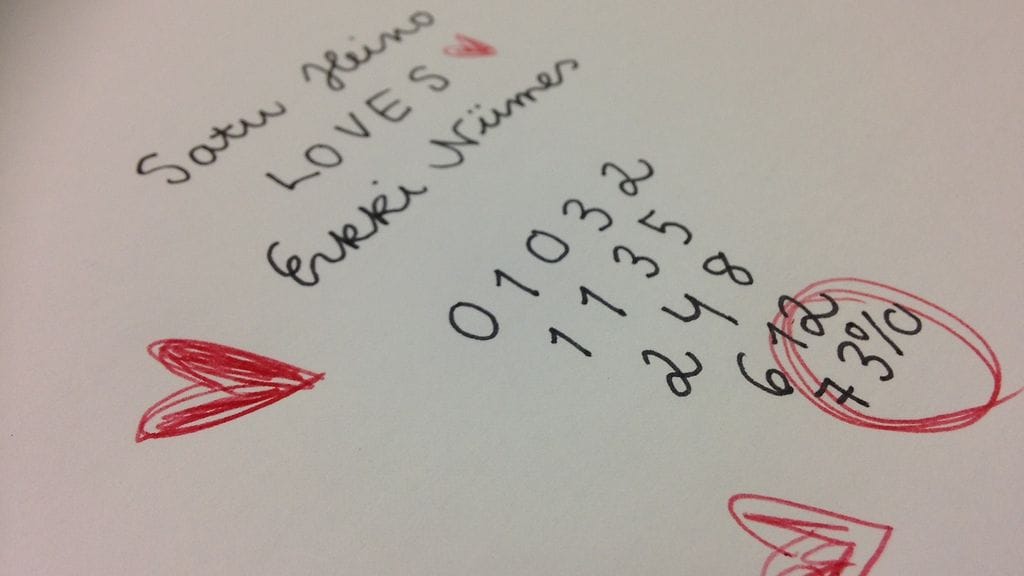 Satu Heino
LOVES
Erkki Niimes
0 1 0 3 2
1 1 3 5
2 4 8
6 12
73%